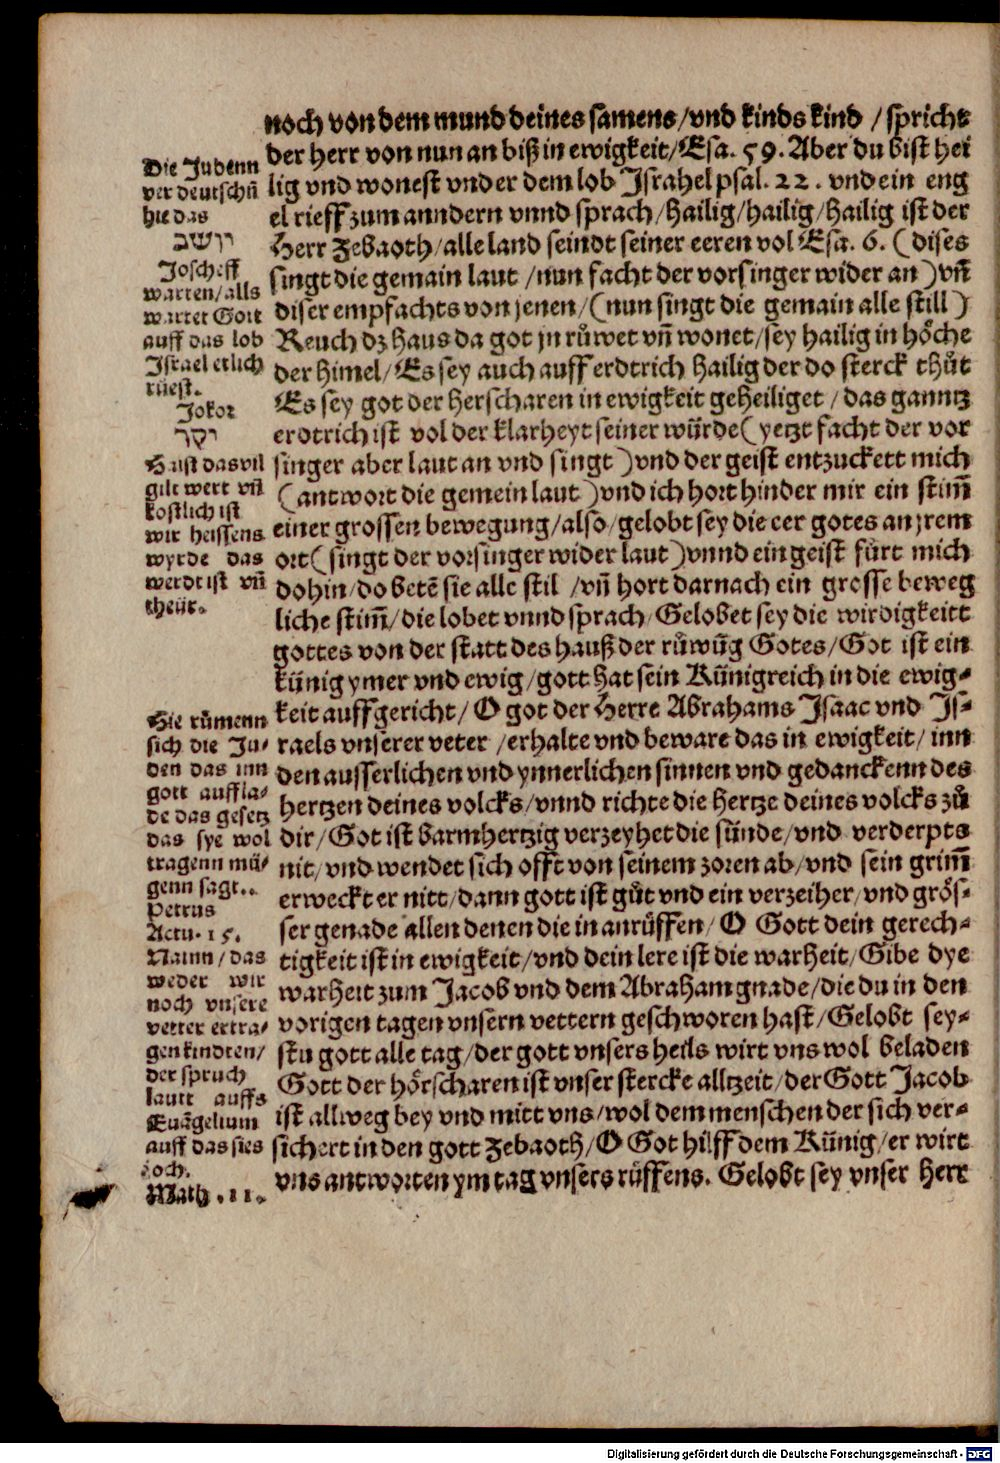 noch von dem mund deines samens/vnd kinds kind /spricht
der herr von nun an biß in ewigkeit/Esa. 59. Aber du bist hei
lig vnd wonest vnder dem lob Jsrahel psal. 22. vnd ein eng
el rieff zum anndern vnnd sprach/hailig/hailig/hailig ist der
Herr Zebaoth/alle land seindt seiner eeren vol Esa. 6. (dises
singt die gemain laut /nun facht der vorsinger wider an) vn̄
diser empfachts von jenen/(nun singt die gemain alle still)
Reuch dz haus da got jn růwet vn̄ wonet/sey hailig in hoͤche
der himel/Es sey auch auff erdtrich hailig der do sterck thůt
Es sey got der herscharen in ewigkeit geheiliget/das ganntz
erdtrich ist vol der klarheyt seiner würde(yetzt facht der vor
singer aber laut an vnd singt)vnd der geist entzuckett mich
(antwort die gemein laut)vnd ich hort hinder mir ein stim̄
einer grossen bewegung/also/gelobt sey die eer gotes an jrem
ort(singt der vorsinger wider laut)vnnd ein geist fürt mich
dohin/do betē sie alle stil /vn̄ hort darnach ein grosse beweg
liche stim̄/die lobet vnnd sprach/Gelobet sey die wirdigkeitt
gottes von der statt des hauß der růwūg Gotes/Got ist ein
künig ymer vnd ewig/gott hat sein Künigreich in die ewig-
keit auffgericht/O got der Herre Abrahams Jsaac vnd Js-
raels vnserer veter /erhalte vnd beware das in ewigkeit/inn
den ausserlichen vnd ynnerlichen sinnen vnd gedanckenn des
hertzen deines volcks/vnnd richte die hertze deines volcks zů
dir/Got ist barmhertzig verzeyhet die sünde/vnd verderpts
nit/vnd wendet sich offt von seinem zoren ab/vnd sein grim̄
erweckt er nitt/dann gott ist gůt vnd ein verzeiher/vnd groͤs-
ser genade allen denen die in anrüffen/O Gott dein gerech-
tigkeit ist in ewigkeit/vnd dein lere ist die warheit/Gibe dye
warheit zum Jacob vnd dem Abraham gnade/die du in den
vorigen tagen vnsern vettern geschworen hast/Gelobt sey-
stu gott alle tag/der gott vnsers heils wirt vns wol beladen
Gott der hoͤrscharen ist vnser stercke alltzeit/der Gott Jacob
ist allweg bey vnd mitt vns/wol dem menschen der sich ver-
sichert in den gott Zebaoth/O Got hilff dem Künig/er wirt
vns antworten ym tag vnsers rüffens. Gelobt sey vnser herr
Die Judenn
ver deutschū
hie das
יושב
Joscheff
warten/alls
wartet Gott
auff das lob
Jsrael etlich
rüest.
Jokor
יקר
Haist das vil
gilt wert vn̄
kostlich ist
wir heissens
wyrde das
werdt ist vn̄
theür.
Hie rümenn
sich die Ju-
den das inn
gott auffla-
de das gesetz
das sye wol
tragenn mü-
genn sagt..
Petrus
Actu. 15.
Nainn/das
weder wir
noch vnsere
vetter ertra-
gen kindten/
der spruch
lautt auffs
Euāgelium
auff das sies
ioch.
Math. 11.
Digitalisierung gefördert durch die Deutsche Forschungsgemeinschaft - DFG